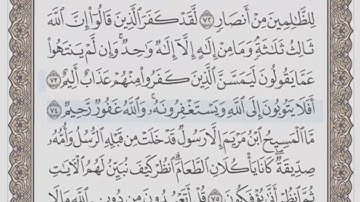 لِلظَّٰلِمِينَ مِنْ أَنصَارٍ ﴿٧٢﴾ لَّقَدْ كَفَرَ ٱلَّذِينَ قَالُوٓا۟ إِنَّ ٱللَّهَ
ثَالِثُ ثَلَٰثَةٍ وَمَا مِنْ إِلَٰهٍ إِلَّآ إِلَٰهٌ وَٰحِدٌ وَإِن لَّمْ يَنتَهُوا۟
عَمَّا يَقُولُونَ لَيَمَسَّنَّ ٱلَّذِينَ كَفَرُوا۟ مِنْهُمْ عَذَابٌ أَلِيمٌ ﴿٧٣﴾
أَفَلَا يَتُوبُونَ إِلَى ٱللَّهِ وَيَسْتَغْفِرُونَهُۥ وَٱللَّهُ غَفُورٌ رَّحِيمٌ ﴿٧٤﴾
مَّا ٱلْمَسِيحُ ٱبْنُ مَرْيَمَ إِلَّا رَسُولٌ قَدْ خَلَتْ مِن قَبْلِهِ ٱلرُّسُلُ وَأُمُّهُۥ
صِدِّيقَةٌ كَانَا يَأْكُلَانِ ٱلطَّعَامَ ٱنظُرْ كَيْفَ نُبَيِّنُ لَهُمُ ٱلْءَايَٰتِ
ثُمَّ ٱنظُرْ أَنَّىٰ يُؤْفَكُونَ ﴿٧٥﴾ قُلْ أَتَعْبُدُونَ مِن دُونِ ٱللَّهِ مَا لَا